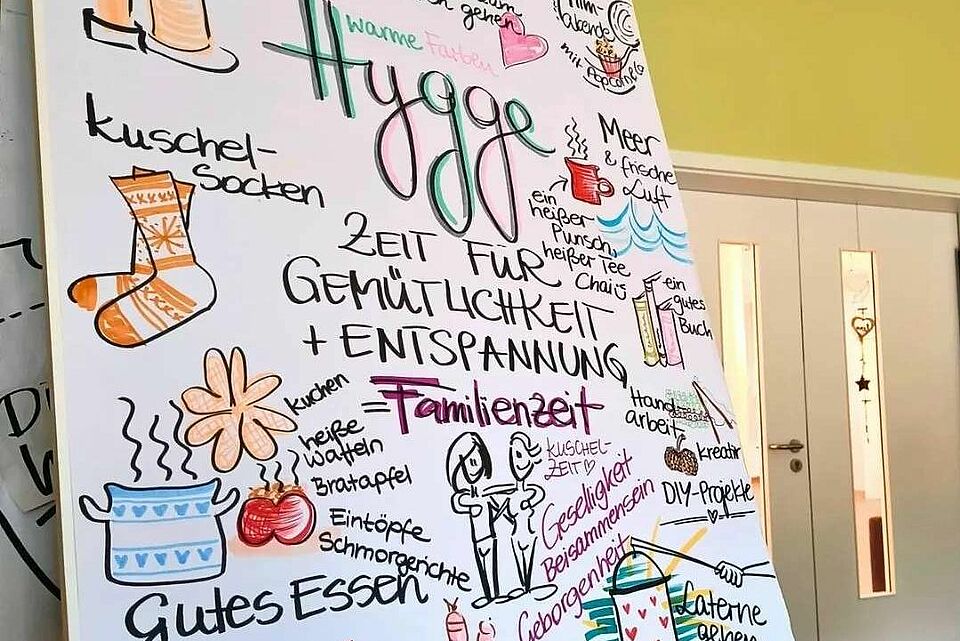 gehen
warme Farben
Hygge
Film-
abende
mit Popcorn
Kuschel-
Socken
Meer
& frische
Luft
ein
heißer
Punsch,
heißer Tee
Chais
ZEIT FÜR
GEMÜTLICHKEIT
+ ENTSPANNUNG
= Familienzeit
ein
gutes
Buch
Kuchen
heiße
Waffeln
Bratapfel
Eintöpfe
Schmorgerichte
Gutes Essen
KUSCHEL-
ZEIT
Geselligkeit
Beisammensein
Geborgenheit
Hand
arbeit
kreativ
DIY-Projekte
Laterne
gehen